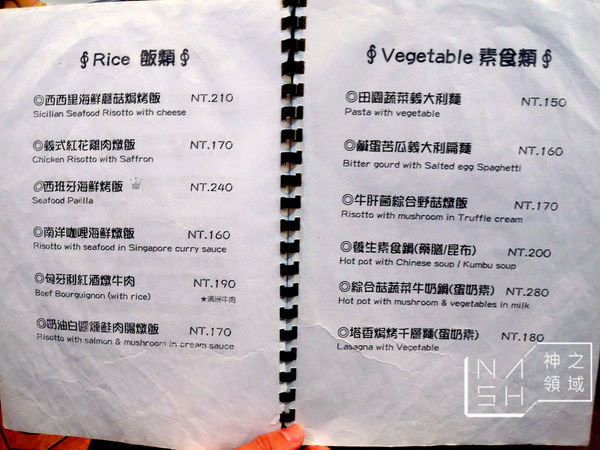 ∮Rice 飯類∮
◎西西里海鮮蘑菇焗烤飯 NT.210
Sicilian Seafood Risotto with cheese
◎義式紅花雞肉燉飯 NT.170
Chicken Risotto with Saffron
◎西班牙海鮮烤飯 NT.240
Seafood Paëlla
◎南洋咖哩海鮮燉飯 NT.160
Risotto with seafood in Singapore curry sauce
◎匈牙利紅酒燉牛肉 NT.190
Beef Bourguignon (with rice) ★澳洲牛肉
◎奶油白醬燻鮭肉腸燉飯 NT.170
Risotto with salmon & mushroom in cream sauce
∮Vegetable 素食類∮
◎田園蔬菜義大利麵 NT.150
Pasta with vegetable
◎鹹蛋苦瓜義大利扁麵 NT.160
Bitter gourd with Salted egg Spaghetti
◎牛肝菌綜合野菇燉飯 NT.170
Risotto with mushroom in Truffle cream
◎養生素食鍋(藥膳/昆布) NT.200
Hot pot with Chinese soup / Kumbu soup
◎綜合菇蔬菜牛奶鍋(蛋奶素) NT.280
Hot pot with mushroom & vegetables in milk
◎塔香焗烤千層麵(蛋奶素) NT.180
Lasagna with Vegetable
NASH
神之領域